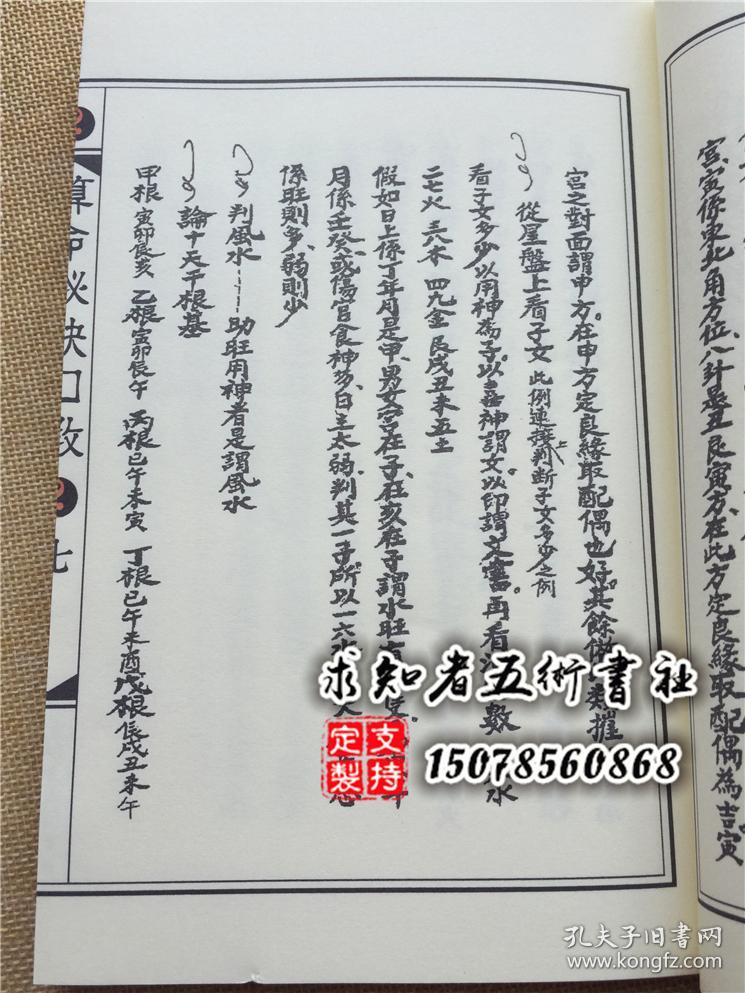 宮寅係東北角方位八計是丑艮寅方、在此方定良緣取配偶為吉寅
宮之對面謂申方。在申方定良緣取配偶也好。其餘
從星盤上看子女 此例連接上判断子女多少之例
看子女多少以用神為子。以喜神謂女以印謂文書。再看 數 水
二七火 三八木 四九金 艮戌丑未五土
假如日上係丁年月是甲、男女宮在子、在亥在子謂水旺
月係壬癸、或傷官食神多、日主太弱、判其一子、所以一六水
係旺則多、弱則少
判風水 助旺用神者是謂風水
論十天干根基
甲根 寅卯辰亥 乙根 寅卯辰午 丙根 巳午未寅 丁根 巳午未酉 戊根 辰戌丑未午
算命秘訣口教
七
求知者五術書社
支持定製
15078560868
孔夫子旧書网
kongfz.com